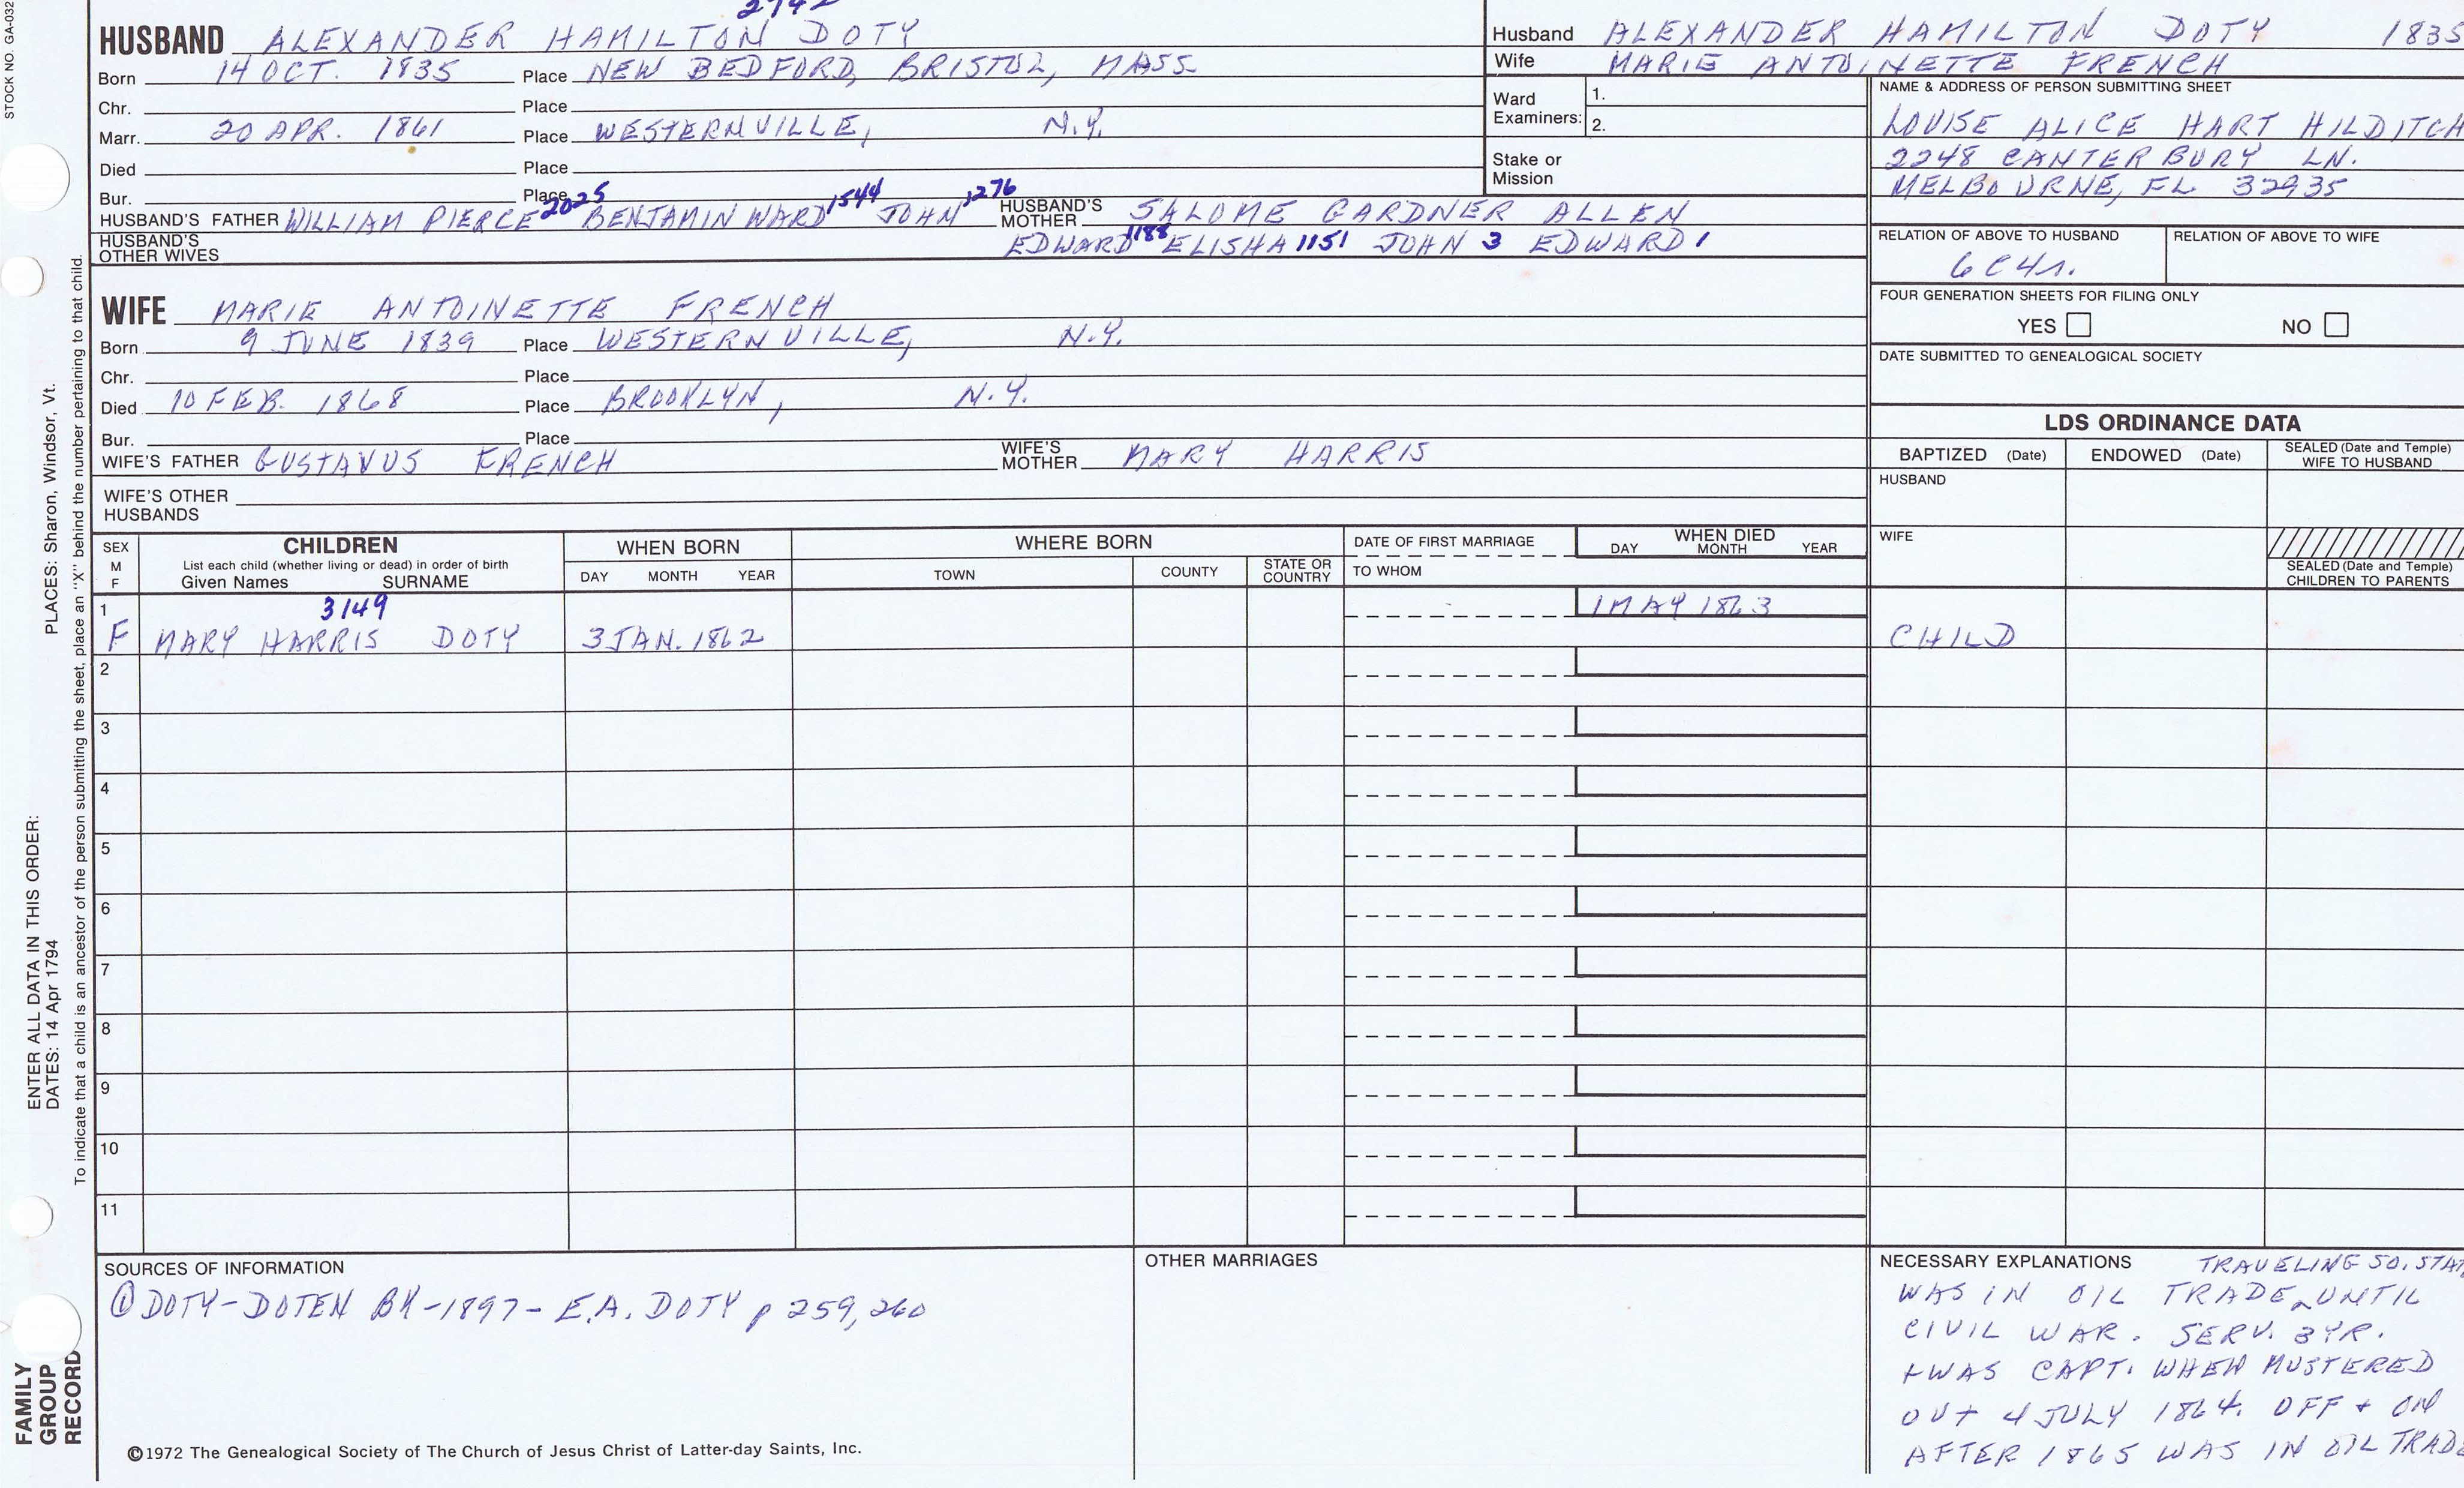 STOCK NO. GA-032
HUSBAND ALEXANDER HAMILTON DOTY
Born 14 OCT. 1835 Place NEW BEDFORD, BRISTOL, MASS
Chr. Place
Marr. 20 APR. 1861 Place WESTERNVILLE, N.Y.
Died Place
Bur. Place
HUSBAND'S FATHER WILLIAM PIERCE 2025 BENJAMIN WARD 1544 JOHN 1276 HUSBAND'S MOTHER SALOME GARDNER ALLEN
HUSBAND'S OTHER WIVES EDWARD 1188 ELISHA 1151 JOHN 3 EDWARD 1
WIFE MARIE ANTOINETTE FRENCH
Born 9 JUNE 1839 Place WESTERNVILLE, N.Y.
Chr. Place
Died 10 FEB. 1868 Place BROOKLYN, N.Y.
Bur. Place
WIFE'S FATHER GUSTAVUS FRENCH WIFE'S MOTHER MARY HARRIS
WIFE'S OTHER HUSBANDS
Husband ALEXANDER HAMILTON DOTY 1835
Wife MARIE ANTOINETTE FRENCH
Ward Examiners: 1.
2.
Stake or Mission
NAME & ADDRESS OF PERSON SUBMITTING SHEET
LOUISE ALICE HART HILDITCH
2248 CANTERBURY LN.
MELBOURNE, FL 32935
RELATION OF ABOVE TO HUSBAND RELATION OF ABOVE TO WIFE
6C4r.
FOUR GENERATION SHEETS FOR FILING ONLY
YES NO
DATE SUBMITTED TO GENEALOGICAL SOCIETY
LDS ORDINANCE DATA
BAPTIZED (Date) ENDOWED (Date) SEALED (Date and Temple) WIFE TO HUSBAND
HUSBAND
WIFE
SEALED (Date and Temple) CHILDREN TO PARENTS
SEX M F
CHILDREN
List each child (whether living or dead) in order of birth
Given Names SURNAME
WHEN BORN
DAY MONTH YEAR
WHERE BORN
TOWN COUNTY STATE OR COUNTRY
DATE OF FIRST MARRIAGE
TO WHOM
WHEN DIED
DAY MONTH YEAR
1 3149 1 MAY 1863
F MARY HARRIS DOTY 3 JAN. 1862 CHILD
2
3
4
5
6
7
8
9
10
11
SOURCES OF INFORMATION
① DOTY-DOTEN BK-1897- E.A. DOTY p 259, 260
OTHER MARRIAGES
NECESSARY EXPLANATIONS TRAVELING SO. STAT
WAS IN OIL TRADE UNTIL
CIVIL WAR. SERV. 3YR.
+ WAS CAPT. WHEN MUSTERED
OUT 4 JULY 1864. OFF + ON
AFTER 1865 WAS IN OIL TRADE
©1972 The Genealogical Society of The Church of Jesus Christ of Latter-day Saints, Inc.
PLACES: Sharon, Windsor, Vt.
ENTER ALL DATA IN THIS ORDER:
DATES: 14 Apr 1794
To indicate that a child is an ancestor of the person submitting the sheet, place an "X" behind the number pertaining to that child.
FAMILY
GROUP
RECORD